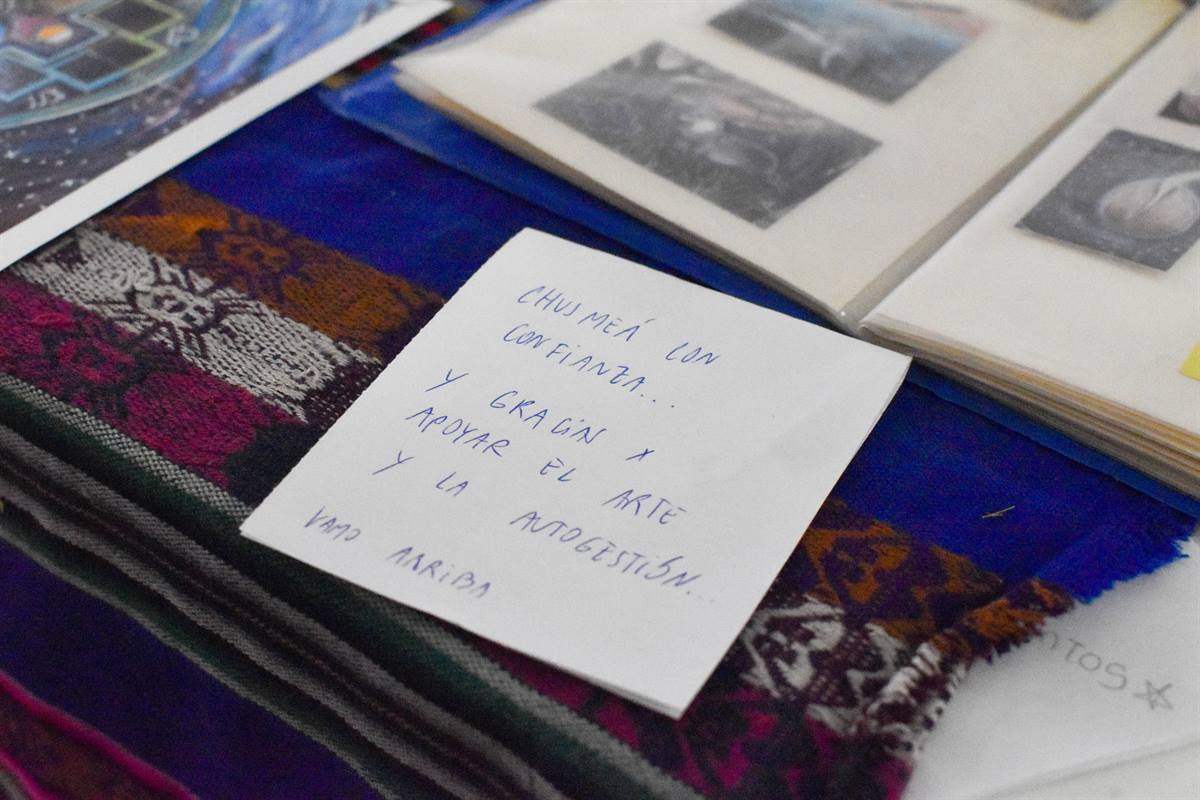 CHUSMEÁ CON
CONFIANZA...
Y GRACIN X
APOYAR EL ARTE
Y LA AUTOGESTIÓN...
VAMO ARRIBA